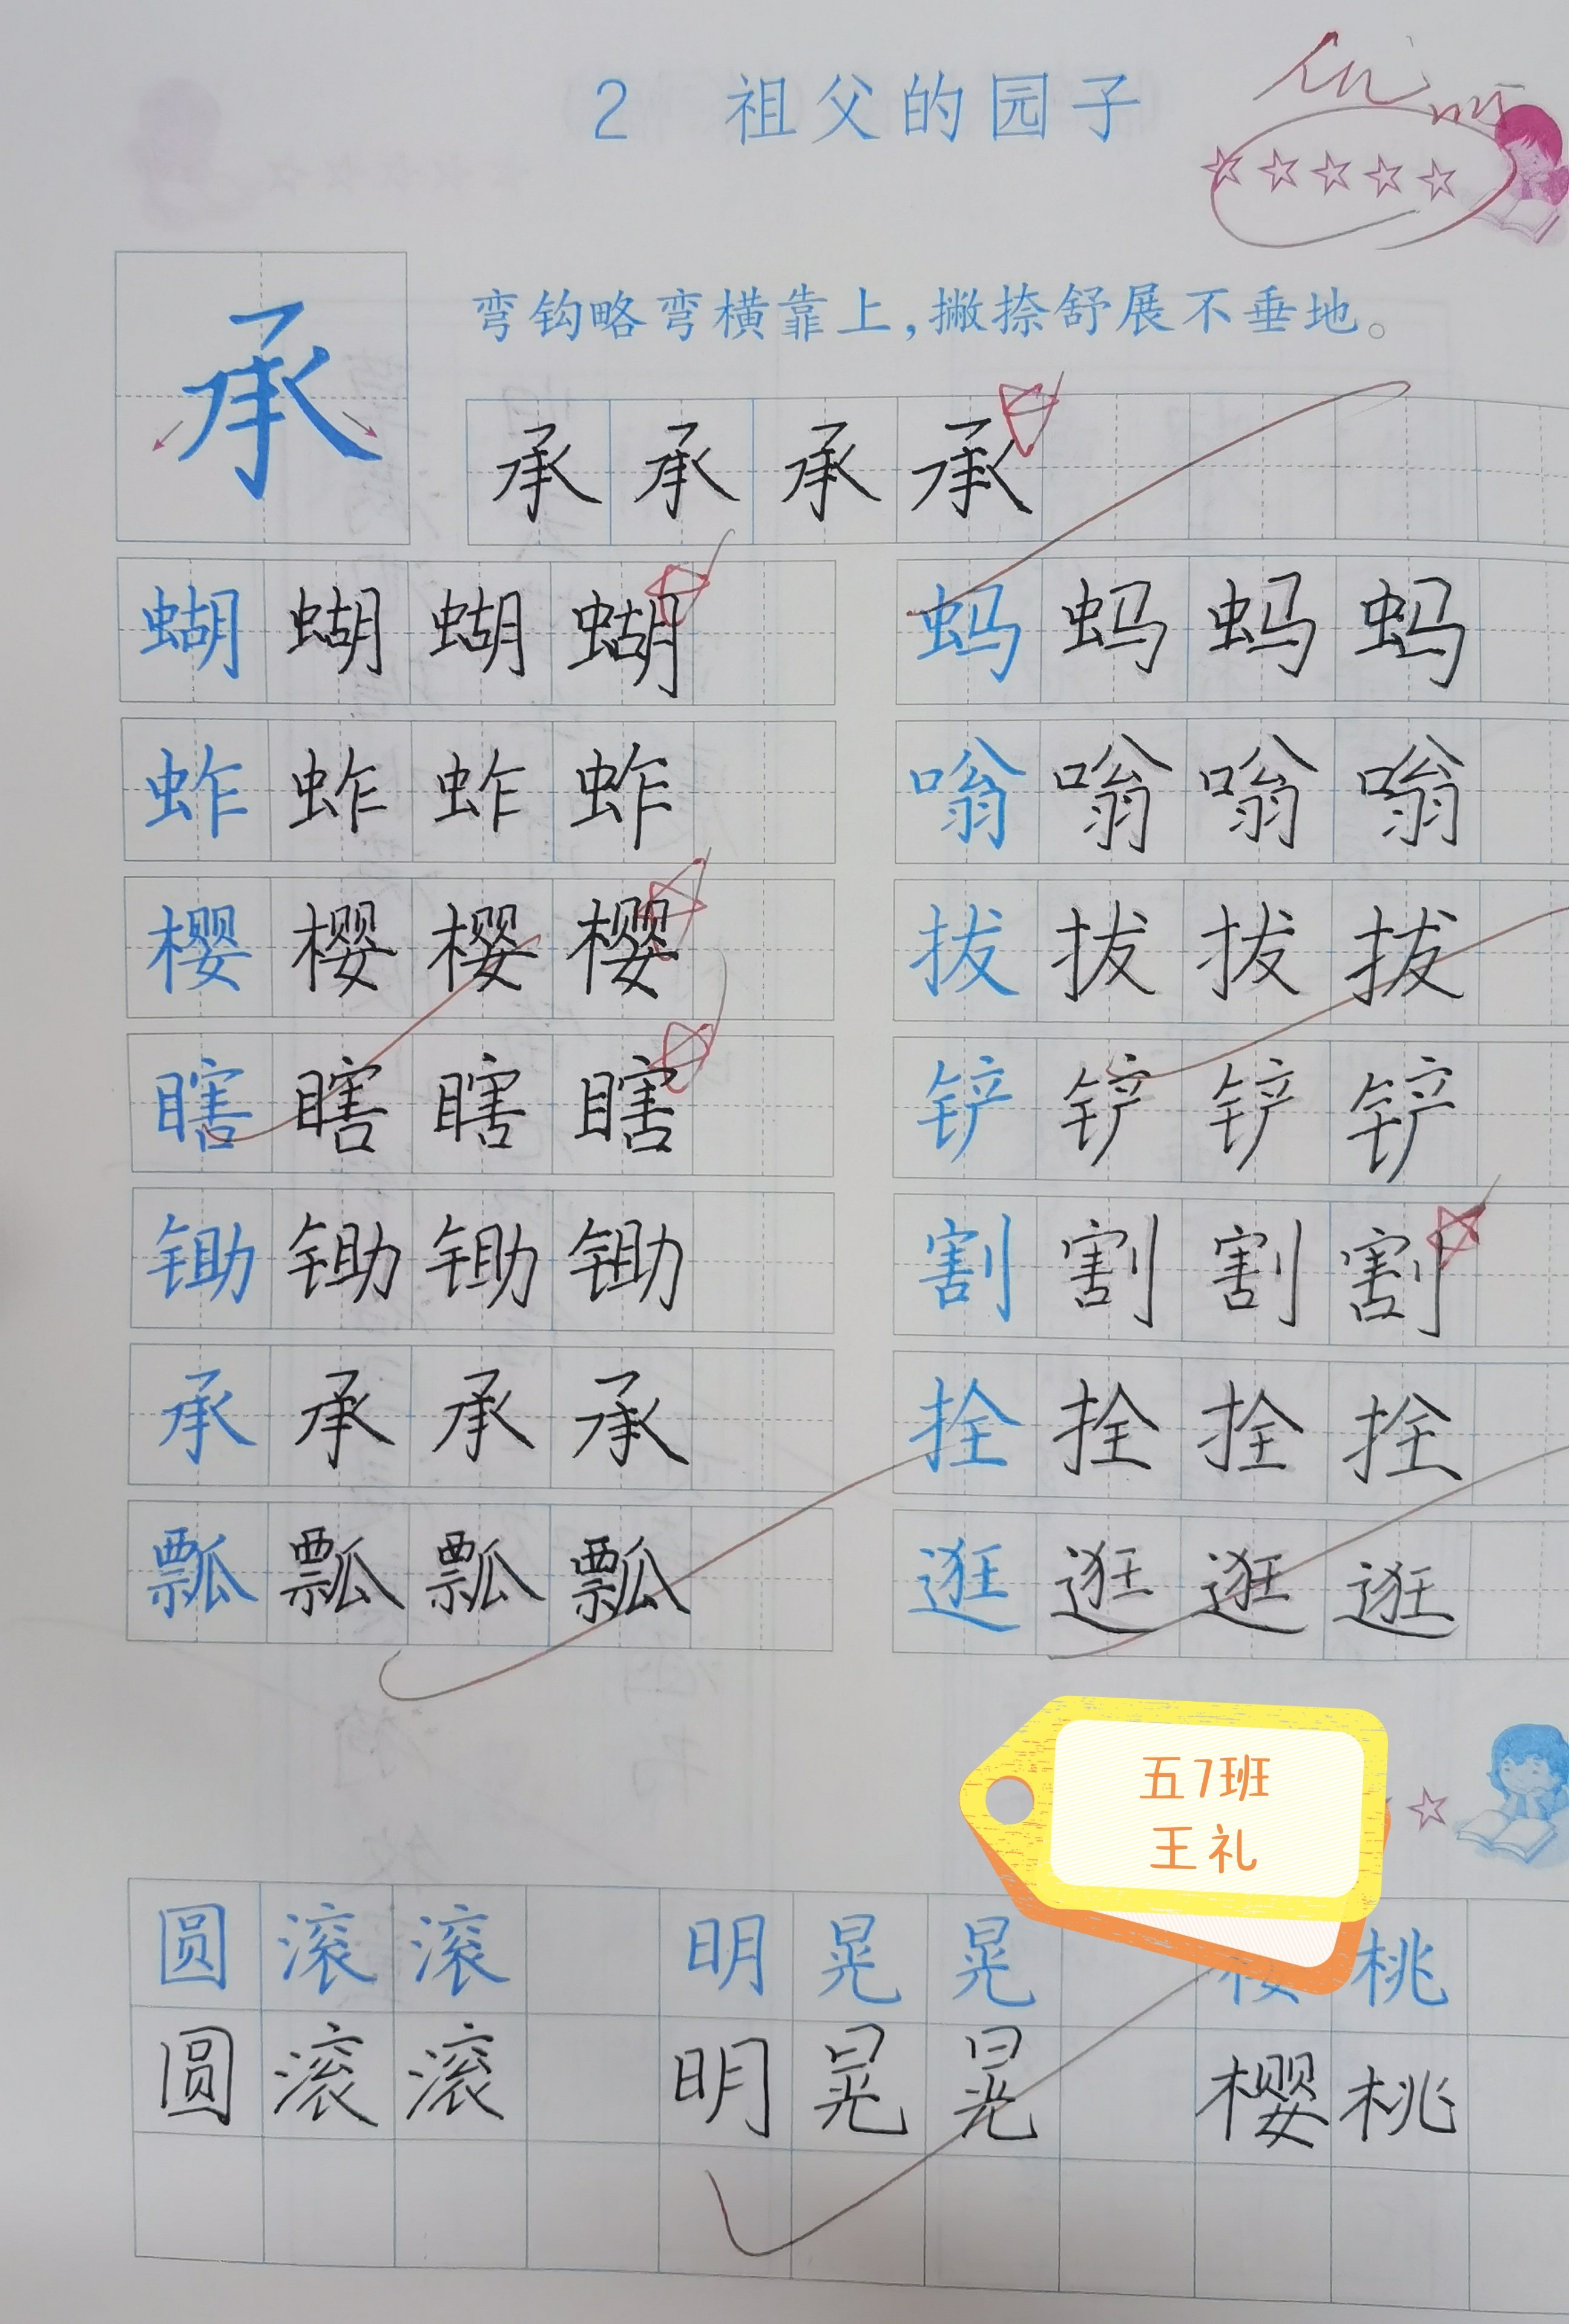 2 祖父的园子
弯钩略弯横靠上，撇捺舒展不垂地。
承
承 承 承 承
蝴 蝴 蝴 蝴 蚂 蚂 蚂 蚂
蚱 蚱 蚱 蚱 嗡 嗡 嗡 嗡
樱 樱 樱 樱 拔 拔 拔 拔
瞎 瞎 瞎 瞎 铲 铲 铲 铲
锄 锄 锄 锄 割 割 割 割
承 承 承 承 拴 拴 拴 拴
瓢 瓢 瓢 瓢 逛 逛 逛 逛
五7班
王礼
圆 滚 滚 明 晃 晃 樱 桃
圆 滚 滚 明 晃 晃 樱 桃